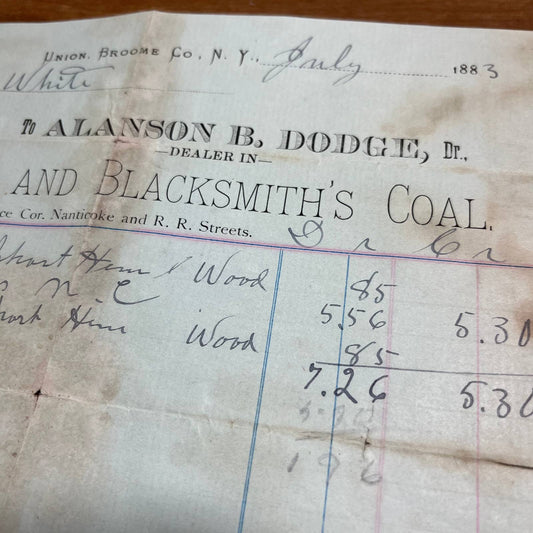 Union, Broome Co., N. Y., July 1883
White
To ALANSON B. DODGE, Dr.,
—DEALER IN—
AND BLACKSMITH'S COAL.
Cor. Nanticoke and R. R. Streets.
Dr Cr
Short Hem Wood 85
5.56 5.30
Hem Wood 85
7.26 5.30
1 9 6